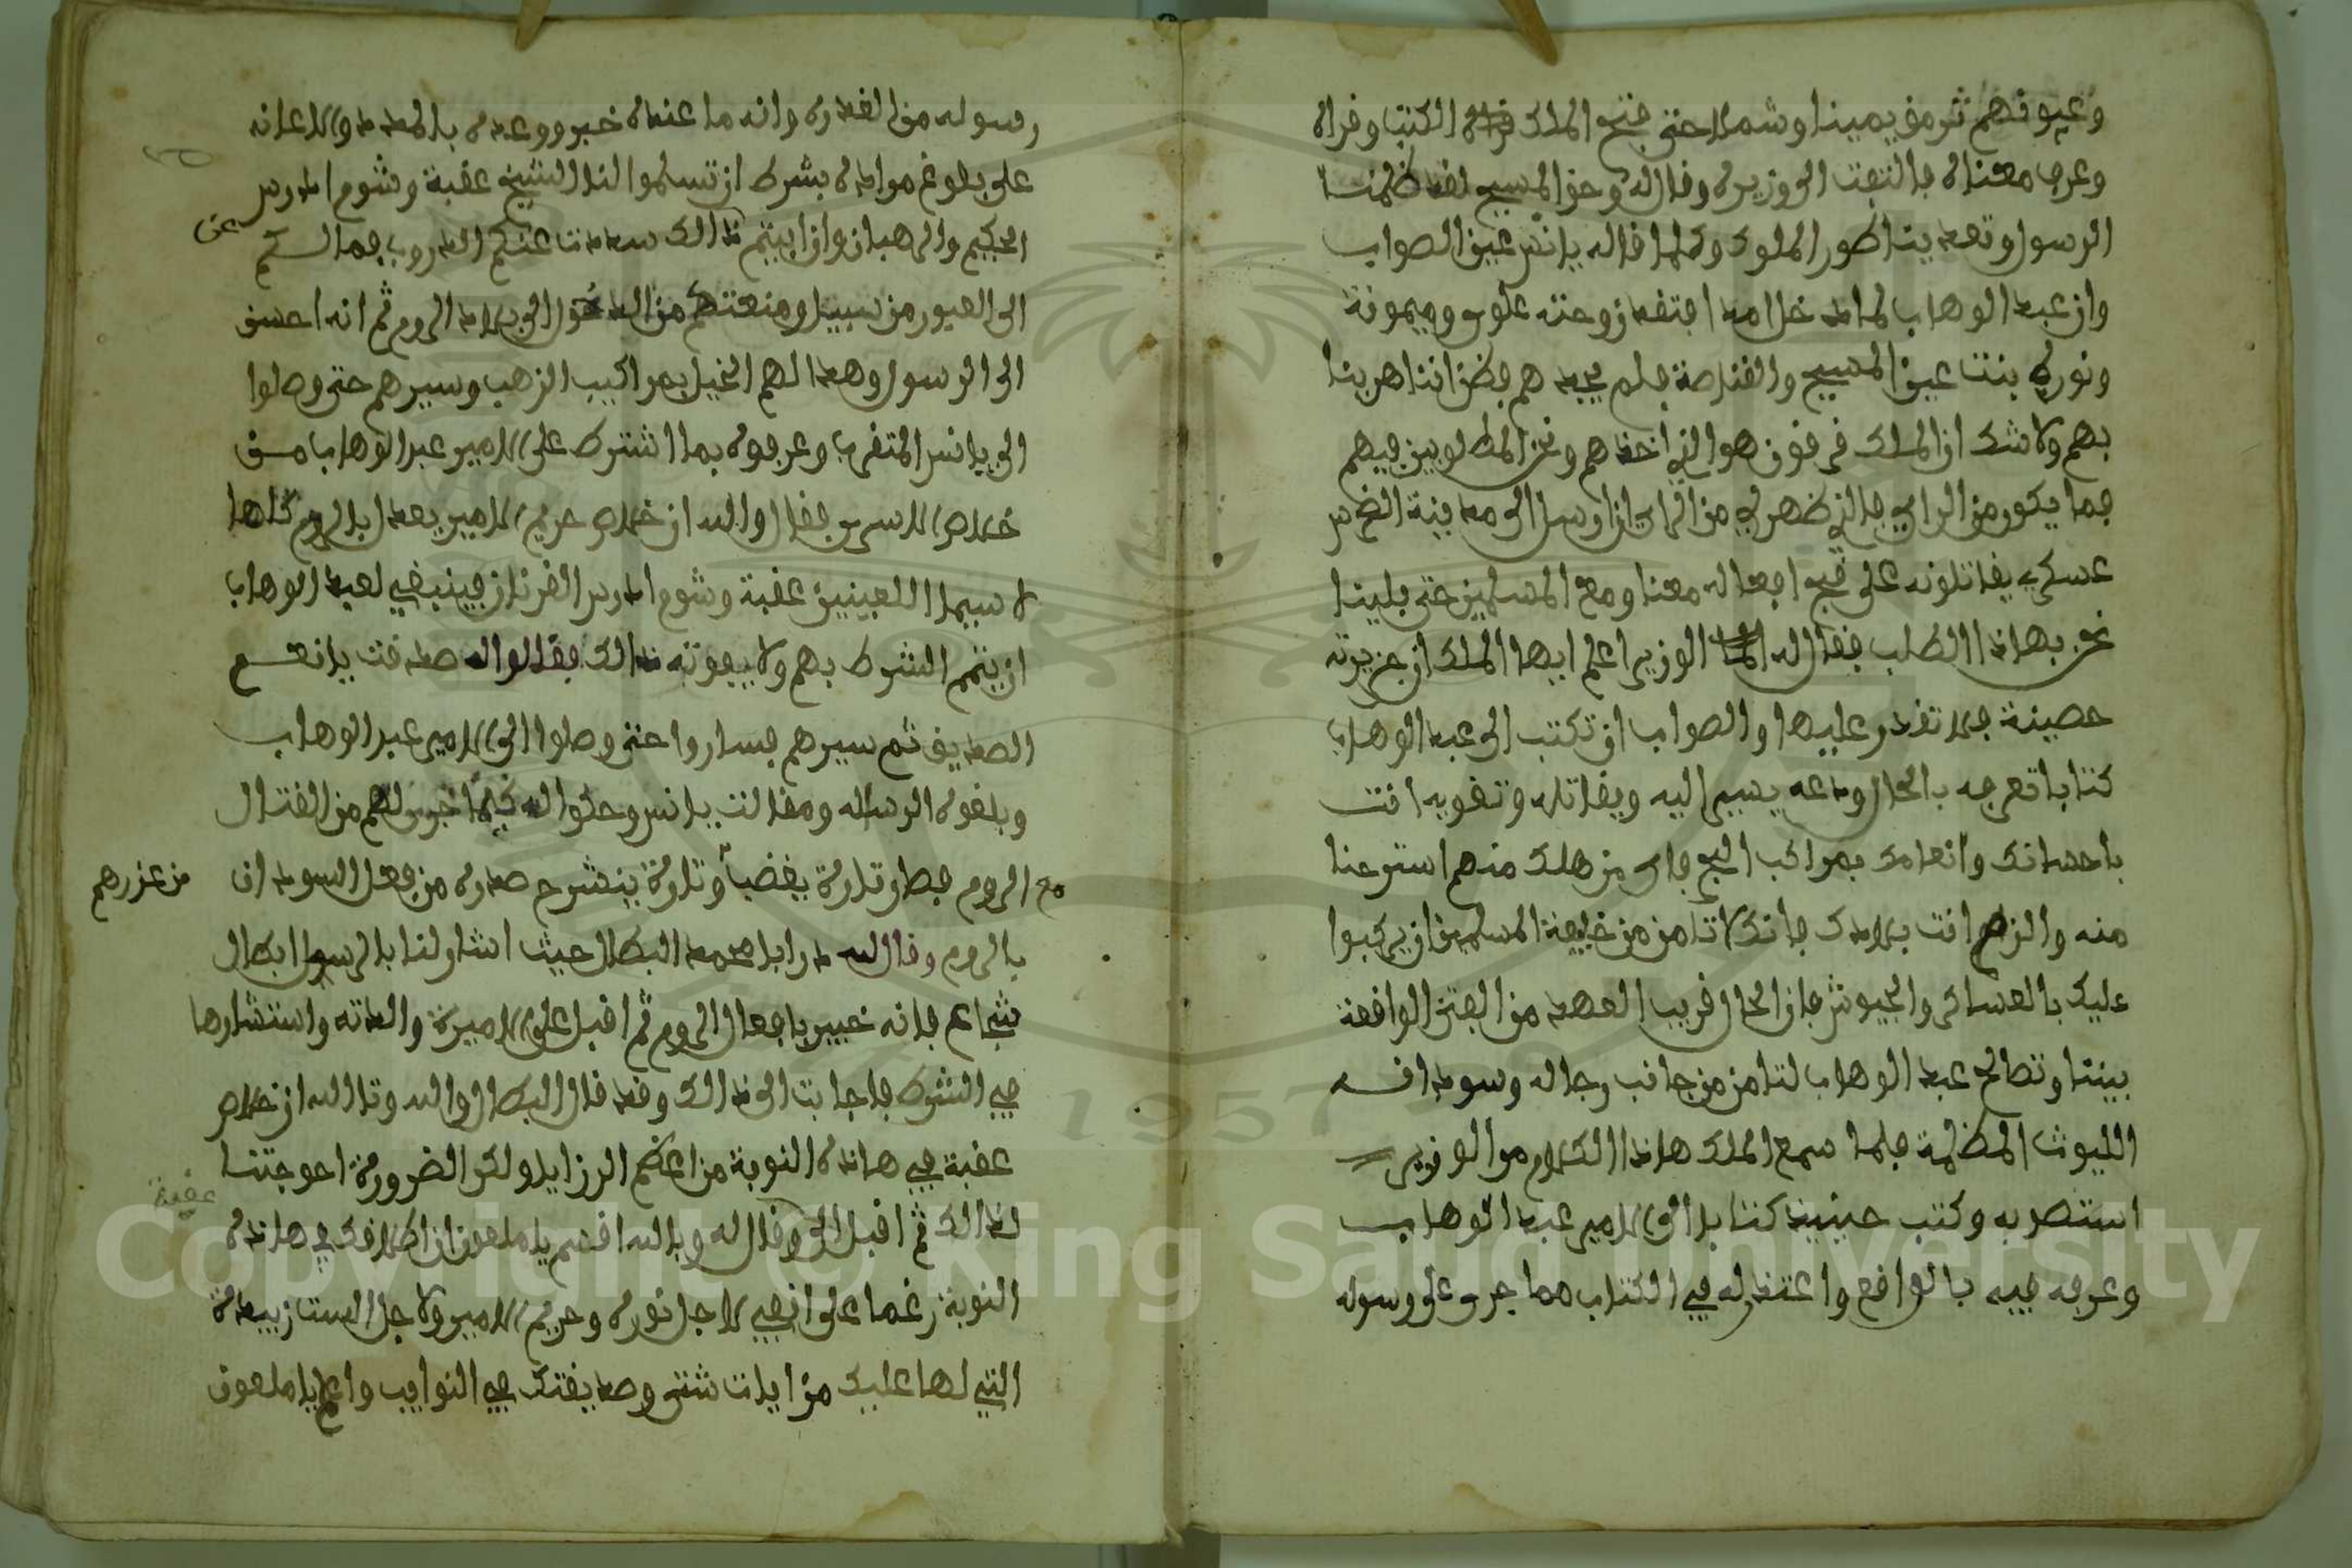 وعيونهم ترمق يمينا وشملا حتى فتح الملك قراة الكتب وقراه
وعرف معناه فالتفت الى وزيره وقال له وحق المسيح لقد ظلمنا
الرسول وتعدينا طور الملوك وكلما قاله يانس عين الصواب
وان عبد الوهاب لما دخل امد افتقد زوجته علوى وميمونة
ونوره بنت عين المسيح والقناصة فلم يجدهم فظن اننا هربنا
بهم ولا شك ان الملك قرقون هو الذي اخذهم ونحن المطلوبين فيهم
فما يكون من الراي فالذي ظهر لي من الراي ان ارسل الى مدينة
عسكري يقاتلونه على قبح افعاله معنا ومع المسلمين حتى بلينا
نحن بهاذا الطلب فقال له الوزير اعلم ايها الملك ان جزيرته
حصينة فلا تقدر عليها والصواب ان تكتب الى عبد الوهاب
كتابا تعرفه بالحال ودعه يسير اليه ويقاتله وتقويه انت
باحسانك وانعامك بمراكب البحر فاى من هلك منهم استرحنا
منه والزم انت بلادك فانك لا تامن من خليفة المسلمين ان يركبوا
عليك بالعساكر والجيوش فان الحال قريب العهد من الفتن الواقعة
بيننا وتصالح عبد الوهاب لتامن من جانب رجاله وسودانه
الليوث المظلمة فلما سمع الملك هاذا الكلام من الوزير
استصوبه وكتب حينيذ كتابا الى الامير عبد الوهاب
وعرفه فيه بالواقع واعتذر له في الكتاب مما جرى على رسوله
رسوله من الغدره وانه ما عنده خبر ووعده بالمدد والاعانه
على بلوغ مراده بشرط ان تسلموا لنا الشيخ عقبة وشومدرس
الحكيم والرهبان وان ابيتم ذالك سددت عنكم الدروب فما لكم
الى العبور من سبيل ومنعتكم من الدخول الى بلاد الروم ثم انه احسن
الى الرسول وهدا لهم الخيل بمراكيب الذهب وسيرهم حتى وصلوا
الى يانس المتقرب وعرفوه بما اشترط على الامير عبد الوهاب من
خلاص الاسرى فقال والله ان خلاص حريم الامير يعدل بالروم كلها
لا سيما اللعينين عقبة وشومدرس القرنان فينبغي لعبد الوهاب
ان يتمم الشرط بهم ولا يفوته ذالك فقالوا له صدقت يا نعم
الصديق ثم سيرهم فساروا حتى وصلوا الى الامير عبد الوهاب
وبلغوه الرساله ومقالت يانس وحكوا له كيما جرى لهم من القتال
مع الروم فبطل وتارة يغضب وتارة ينشرح صدره من فعل السودان من غدرهم
بالروم وقال لله در ابا محمد البطال حيث اشار لنا بالرسول ابطال
شجاع فانه خبير بافعال الروم ثم اقبل على الاميرة والدته واستشارها
في الشرط فاجابت الى ذالك وقد قال البطال والله وتالله ان خلاص
عقبة في هاذه النوبة من اعظم الرزايا ولكن الضرورة احوجتنا
لذالك ثم اقبل الى وقال له وبالله اقسم يا ملعون ان اطلاقك في هاذه
النوبة رغما على انفي لاجل نوره وحريم الامير ولاجل الست زبيدة
التي لها عليك مزايات شتى وصديقتك في النوايب واعلم يا ملعون
عقبة